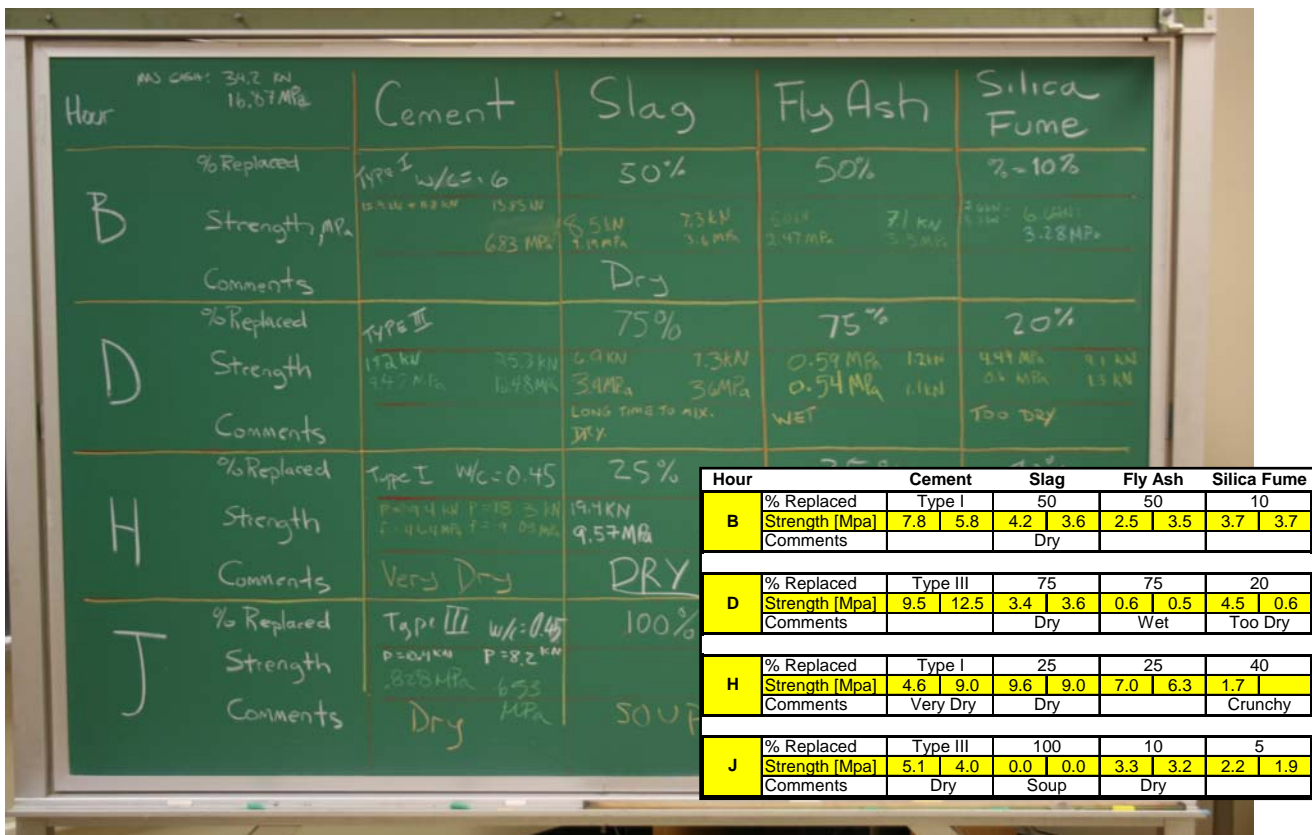 Hour 34.2 KN Cement Slag Fly Ash Silica Fume
16.87 MPa
B
% Replaced TYPE I w/c=.6 50% 50% %=10%
Strength, MPa 13.85 kN 8.5 kN 7.3 kN 7.1 KN
6.83 MPa 3.6 MPa 2.47 MPa 3.5 MPa 3.28 MPa
Comments Dry
D
% Replaced TYPE III 75% 75% 20%
Strength 19.2 kN 25.3 kN 6.9 KN 7.3 KN 0.59 MPa 1.2 kN 4.49 MPa 9.1 KN
3.4 MPa 3.6 MPa 0.54 MPa 1.1 kN 0.6 MPa 1.3 KN
Comments LONG TIME TO MIX. DRY. WET TOO DRY
H
% Replaced Type I w/c=0.45 25%
Strength P=9.4 kN P=18.3 kN 19.4 KN
9.57 MPa
Comments Very Dry DRY
J
% Replaced Type III w/c=0.45 100%
Strength P=8.2 KN
.828 MPa MPa
Comments Dry SOUP
Hour Cement Slag Fly Ash Silica Fume
B
% Replaced Type I 50 50 10
Strength [Mpa] 7.8 5.8 4.2 3.6 2.5 3.5 3.7 3.7
Comments Dry
D
% Replaced Type III 75 75 20
Strength [Mpa] 9.5 12.5 3.4 3.6 0.6 0.5 4.5 0.6
Comments Dry Wet Too Dry
H
% Replaced Type I 25 25 40
Strength [Mpa] 4.6 9.0 9.6 9.0 7.0 6.3 1.7
Comments Very Dry Dry Crunchy
J
% Replaced Type III 100 10 5
Strength [Mpa] 5.1 4.0 0.0 0.0 3.3 3.2 2.2 1.9
Comments Dry Soup Dry